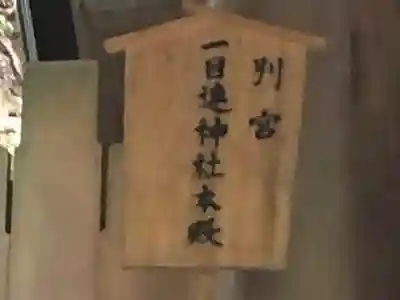 別宮
一目連神社本殿